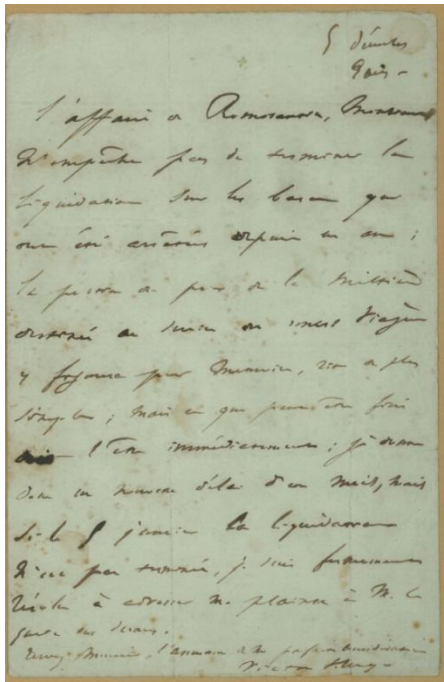 5 décembre
Paris -
L'affaire de Romorantin, Monsieur
n'empêche pas de terminer la
liquidation sur les bases qui
ont été arrêtées depuis un an ;
la
destiné au
y pour Mémoire, rien de plus
simple ; mais ce que peut être fait
doit l'être immédiatement ; je donne
donc un nouveau délai d'un mois, mais
si le 5 janvier la liquidation
n'est pas terminée, je suis fermement
résolu à adresser ma plainte à M. le
garde des sceaux.
Monsieur, l'assurance de ma parfaite considération
Victor Hugo